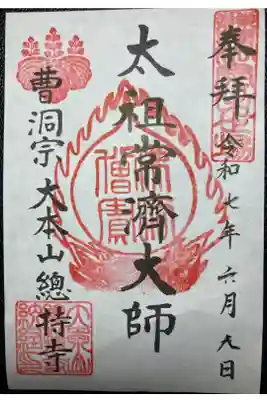 奉拝
令和七年六月九日
太祖常濟大師
曹洞宗大本山總持寺